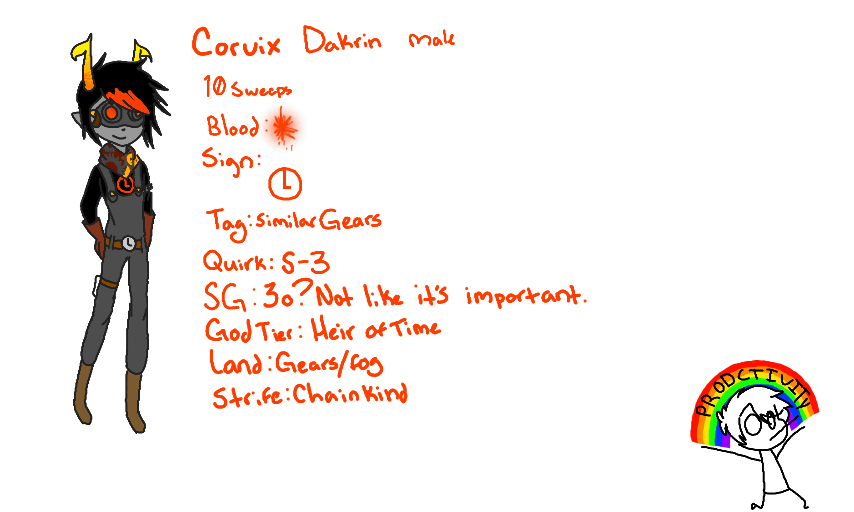 Corvix Dakrin male
10 sweeps
Blood:
Sign:
Tag: similarGears
Quirk: S-3
SG: 3o? Not like it's important.
God Tier: Heir of Time
Land: Gears/fog
Strife: ChainKind
PRODCTIVITY